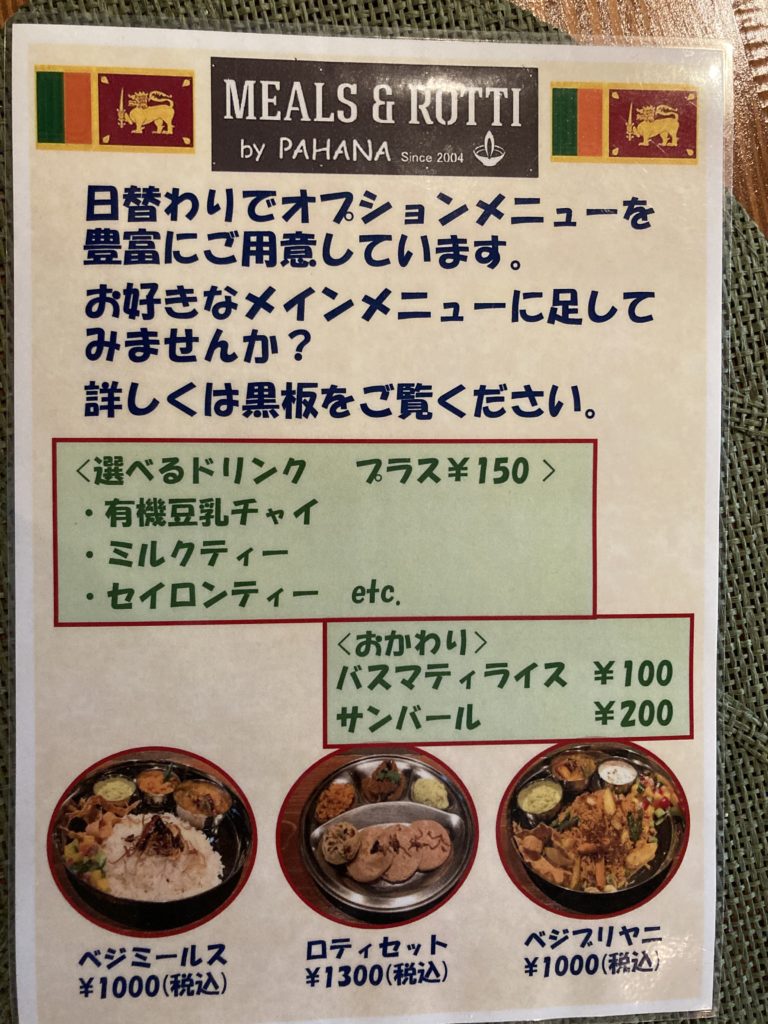 MEALS & ROTTI
by PAHANA Since 2004
日替わりでオプションメニューを
豊富にご用意しています。
お好きなメインメニューに足して
みませんか？
詳しくは黒板をご覧ください。
<選べるドリンク プラス￥150 >
・有機豆乳チャイ
・ミルクティー
・セイロンティー etc.
<おかわり>
バスマティライス ￥100
サンバール ￥200
ベジミールス
¥1000(税込)
ロティセット
¥1300(税込)
ベジブリヤニ
¥1000(税込)